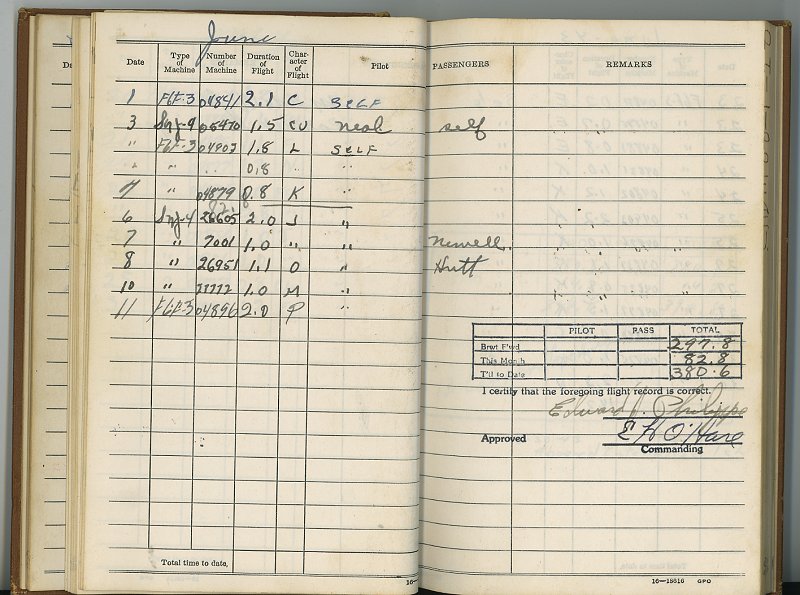 June
Date Type of Machine Number of Machine Duration of Flight Character of Flight Pilot PASSENGERS REMARKS
1 F6F-3 04841 2.1 C SELF
3 Snj-4 05470 1.5 CU Neal self
" F6F-3 04903 1.8 L SELF
" " " 0.8 "
7 " 04879 0.8 K "
82.8
6 Snj-4 26605 2.0 J "
7 " 7001 1.0 " " Newell
8 " 26951 1.1 O " Hutt
10 " 1.0 M "
11 F6F-3 04896 2.0 P "
PILOT PASS TOTAL
Brwt F'wd 297.8
This Month 82.8
T'll to Date 380.6
I certify that the foregoing flight record is correct.
Edward J. Philippe
Approved E H O'Hare
Commanding
Total time to date,
16—
16—18616 GPO